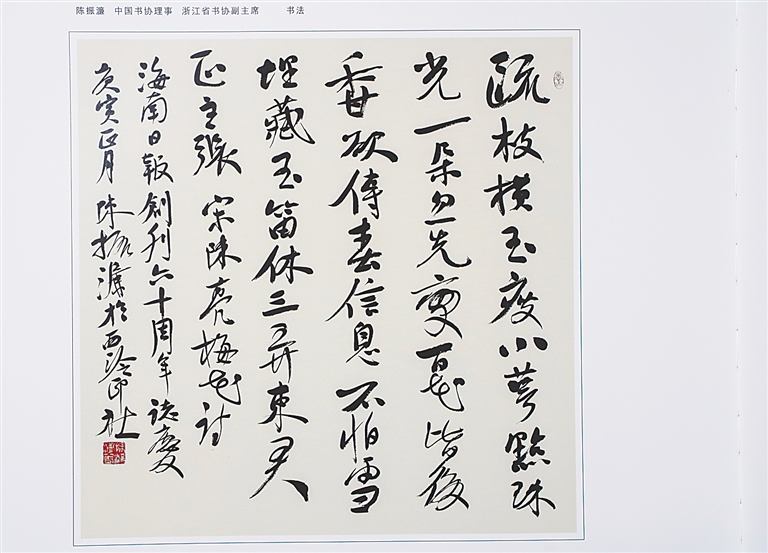 陈振濂 中国书协理事 浙江省书协副主席 书法
疏枝横玉瘦小萼點珠
光一朵忽先變百花皆後
香欲傳春信息不怕雪
埋藏玉笛休三弄東君
正主張 宋陳亮梅花詩
海南日報創刊六十周年誌慶
庚寅正月 陳振濂於西泠印社